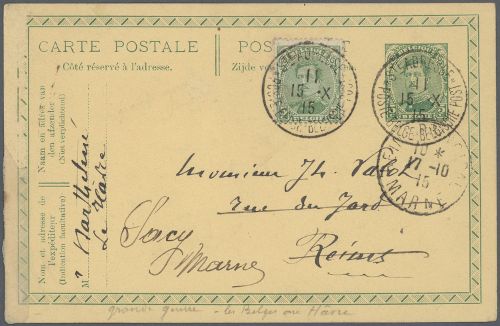 CARTE POSTALE
POSTK
Côté réservé à l'adresse.
Zijde voo
Naam en adres van
den afzender
(Niet verplichtend)
Nom et adresse de
l'expéditeur
(Indication facultative)
Mr Barthelmé
Le Havre
STE ADRESSE
11
15 X
15
POSTE BELGE-BELGISCHE POST
11
15 X
15
10 *
17-10
15
MARNE
Monsieur Jh.
rue du Jard
Reims
Sacy
s/ Marne
grande guerre - les Belges au Havre